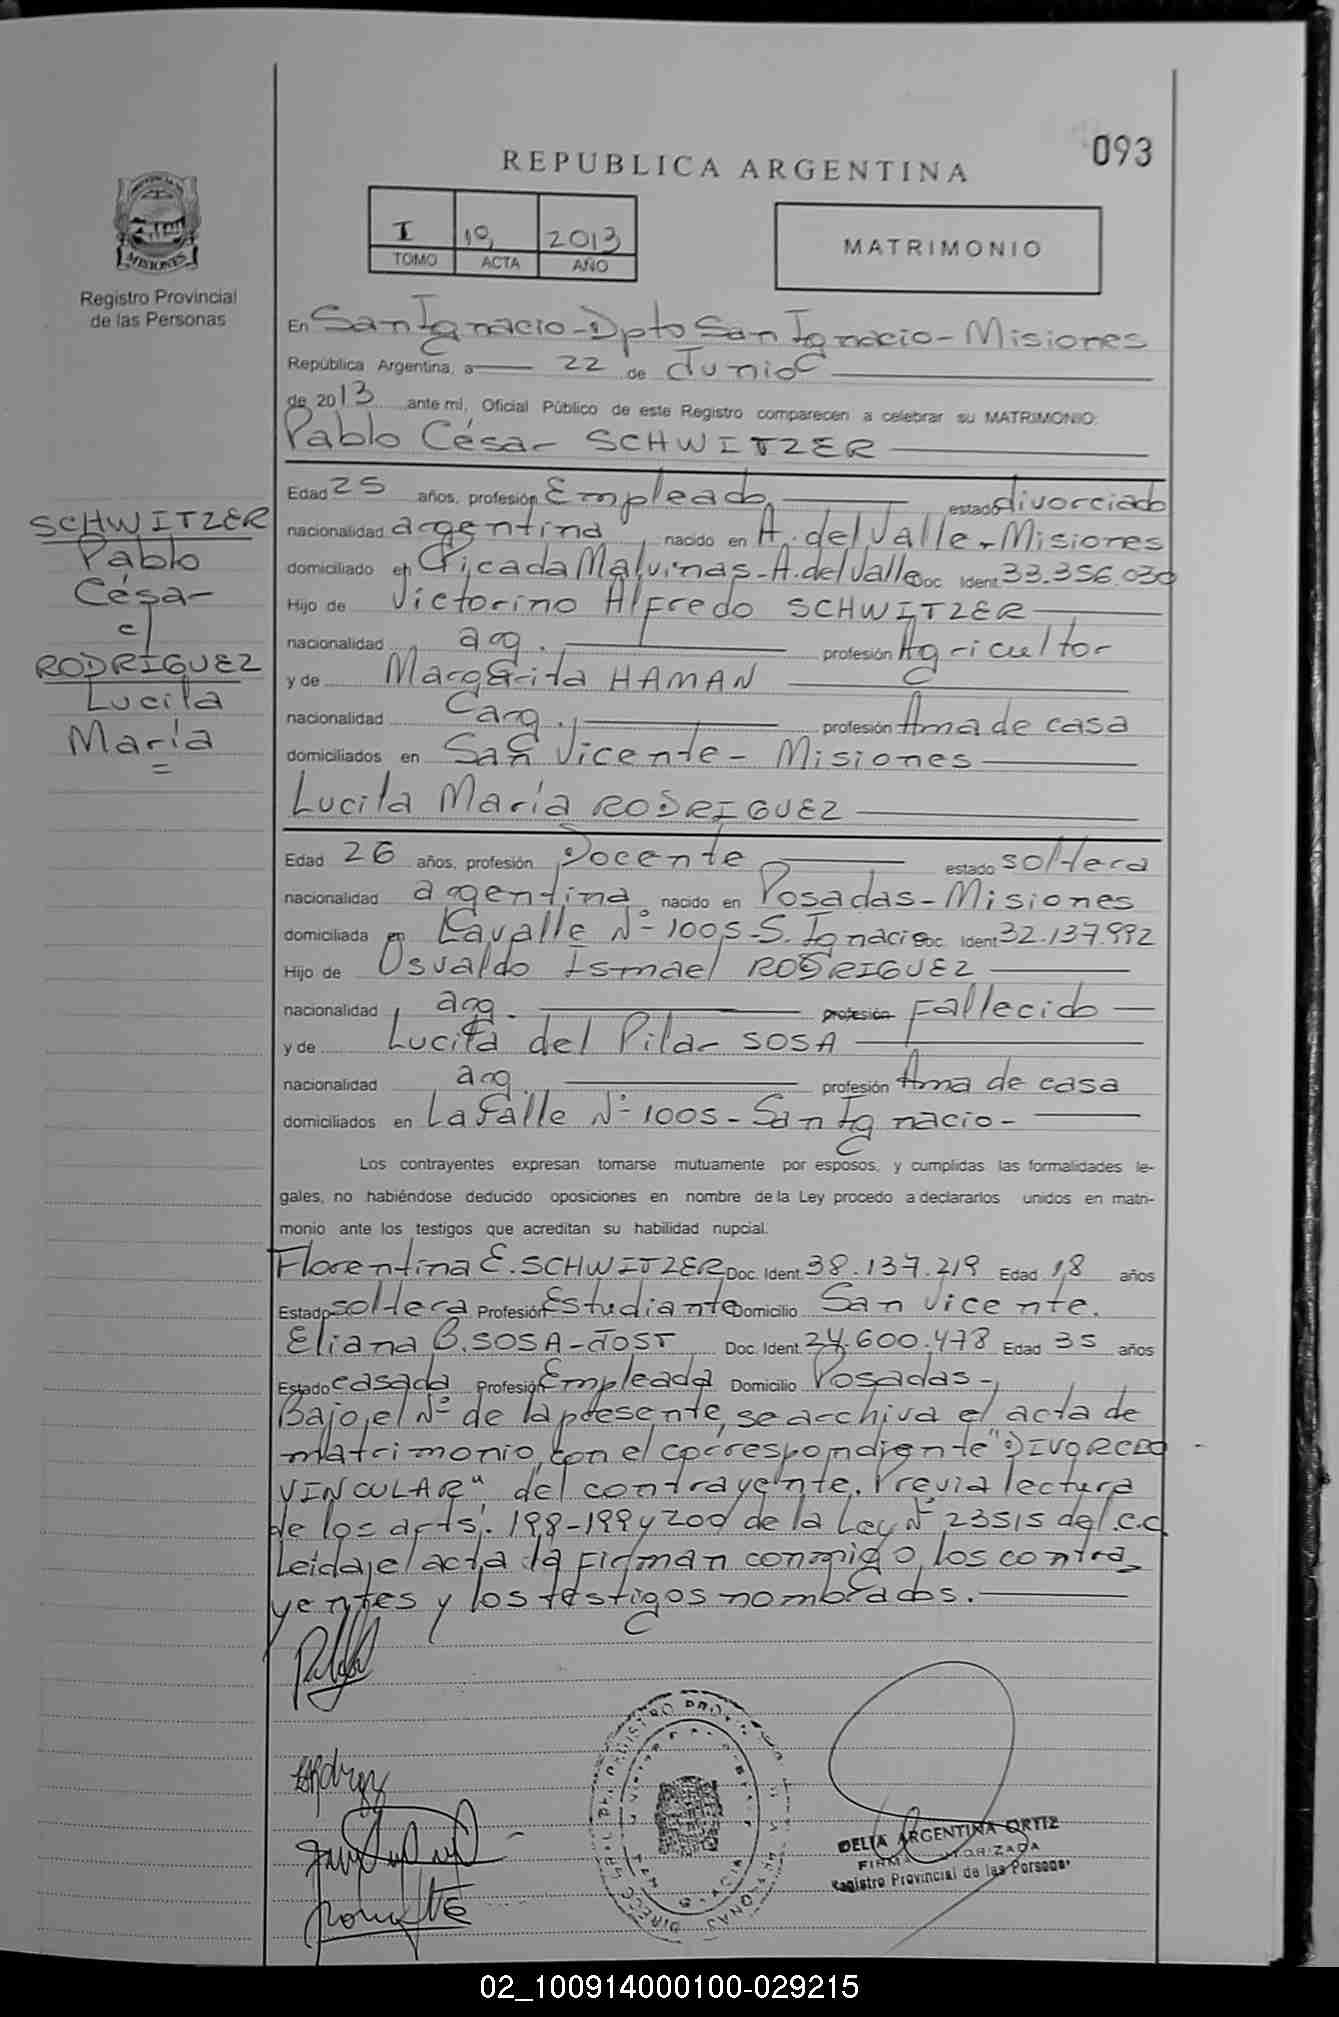 093
REPUBLICA ARGENTINA
I 19 2013
TOMO ACTA AÑO
MATRIMONIO
MISIONES
Registro Provincial
de las Personas
En San Ignacio - Dpto San Ignacio - Misiones
República Argentina, a 22 de Junio
de 2013 ante mí, Oficial Público de este Registro comparecen a celebrar su MATRIMONIO:
Pablo César SCHWITZER
Edad 25 años, profesión Empleado estado divorciado
nacionalidad argentina nacido en A. del Valle - Misiones
domiciliado en Picada Malvinas - A. del Valle Doc Ident. 33.356.030
Hijo de Victorino Alfredo SCHWITZER
nacionalidad arg. profesión Agricultor
y de Margarita HAMAN
nacionalidad arg. profesión Ama de casa
domiciliados en San Vicente - Misiones
SCHWITZER
Pablo
César
c/
RODRIGUEZ
Lucila
María
=
Lucila María RODRIGUEZ
Edad 26 años, profesión Docente estado soltera
nacionalidad argentina nacido en Posadas - Misiones
domiciliada en Lavalle Nº 1005 - S. Ignacio Doc. Ident 32.137.992
Hijo de Osvaldo Ismael RODRIGUEZ
nacionalidad arg. profesión Fallecido
y de Lucila del Pilar SOSA
nacionalidad arg. profesión Ama de casa
domiciliados en Lavalle Nº 1005 - San Ignacio -
Los contrayentes expresan tomarse mutuamente por esposos, y cumplidas las formalidades le-
gales, no habiéndose deducido oposiciones en nombre de la Ley procedo a declararlos unidos en matri-
monio ante los testigos que acreditan su habilidad nupcial.
Florentina E. SCHWITZER Doc. Ident. 38.137.219 Edad 18 años
Estado soltera Profesión Estudiante Domicilio San Vicente.
Eliana B. SOSA - JOST Doc. Ident. 24.600.478 Edad 35 años
Estado casada Profesión Empleada Domicilio Posadas -
Bajo el Nº de la presente, se archiva el acta de
matrimonio, con el correspondiente "DIVORCIO
VINCULAR" del contrayente. Previa lectura
de los arts. 198-199 y 200 de la Ley Nº 23515 del C.C.
Leida el acta la firman conmigo, los contra
yentes y los testigos nombrados.
DELIA ARGENTINA ORTIZ
FIRMA AUTORIZADA
Registro Provincial de las Personas
02_100914000100-029215